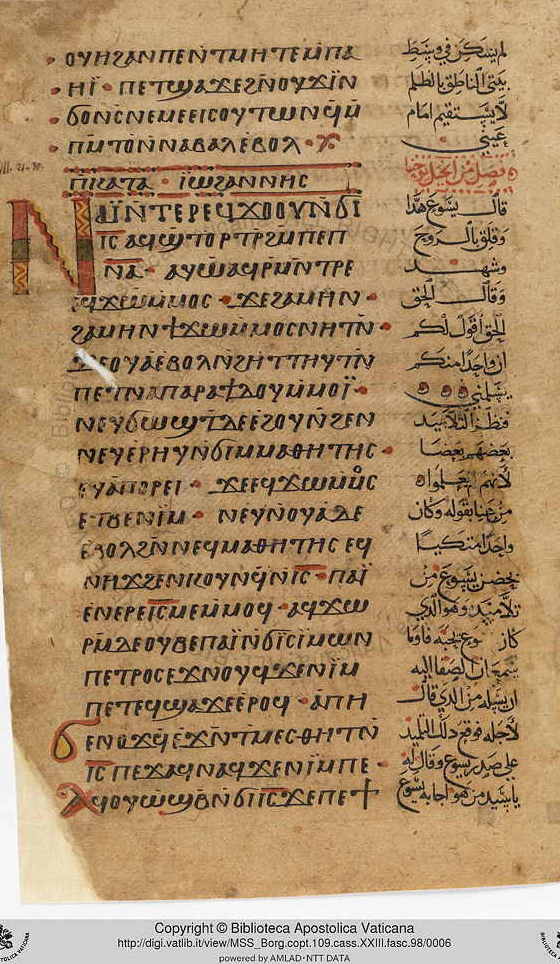 ⲟⲩⲏϩⲁⲛⲡⲉⲛ̄ⲧⲙⲏⲧⲉⲙ̄ⲡⲁ
ⲏⲓ̈ · ⲡⲉⲧϣⲁϫⲉϩⲛ̄ⲟⲩϫⲓⲛ̄
ϭⲟⲛⲥ̄ⲛⲉⲙⲉⲉⲓⲥⲟⲩⲧⲱⲛϥ̄ⲙ̄
ⲡⲙ̄ⲧⲟⲛ̄ⲛⲁⲃⲁⲗⲉⲃⲟⲗ ·
ⲡⲕⲁⲧⲁ · ⲓ̈ⲱϩⲁⲛⲛⲏⲥ
ⲛⲁⲓ̈ⲛ̄ⲧⲉⲣⲉϥϫⲟⲟⲩⲛ̄ϭⲓ
ⲓ̅ⲥ̅ ⲁϥϣⲧⲟⲣⲧⲣ̄ϩⲙ̄ⲡⲉⲡ
ⲛ̅ⲁ̅ · ⲁⲩⲱⲁϥⲣ̄ⲙⲛ̄ⲧⲣⲉ
ⲉϥϫⲱⲙ̄ⲙⲟⲥ · ϫⲉϩⲁⲙⲏⲛ ·
ϩⲁⲙⲏⲛϯϫⲱⲙ̄ⲙⲟⲥⲛⲏⲧⲛ̄ ·
ϫⲉⲟⲩⲁⲉⲃⲟⲗⲛ̄ϩⲏⲧⲧⲏⲩⲧⲛ̄
ⲡⲉⲧⲛⲁⲡⲁⲣⲁϯⲇⲟⲩⲙ̄ⲙⲟⲓ̈ ·
ⲛⲉⲩϭⲱϣⲧ̄ⲇⲉⲉϩⲟⲩⲛϩⲉⲛ
ⲛⲉⲩⲉⲣⲏⲩⲛ̄ϭⲓⲙ̄ⲙⲁⲑⲏⲧⲏⲥ ·
ⲉⲩⲁⲡⲟⲣⲉⲓ · ϫⲉⲉϥϫⲱⲙ̄ⲙⲟⲥ
ⲉⲧⲃⲉⲛⲓⲙ · ⲛⲉⲩⲛ̄ⲟⲩⲁⲇⲉ
ⲉⲃⲟⲗϩⲛ̄ⲛⲉϥⲙⲁⲑⲏⲧⲏⲥ ⲉϥ
ⲛⲏϫϩⲉⲛⲕⲟⲩⲛϥ̄ⲛ̄ⲓ̅ⲥ̅ · ⲡⲁⲓ̈
ⲉⲛⲉⲣⲉⲓ̅ⲥ̅ⲙⲉⲙ̄ⲙⲟϥ · ⲁϥϫⲱ
ⲣⲙ̄ⲇⲉⲟⲩⲃⲉⲡⲁⲓ̈ⲛ̄ϭⲓⲥⲓⲙⲱⲛ
ⲡⲉⲧⲣⲟⲥⲉϫⲛⲟⲩϥϫⲉⲛⲓⲙ
ⲡⲉⲧϥ̄ϣⲁϫⲉⲉⲣⲟϥ · ⲁⲡⲏ
ϭⲉⲛⲟϫϥ̄ⲉϫⲛ̄ⲧⲙⲉⲥⲑⲏⲧⲛ̄
ⲓ̅ⲥ̅ ⲡⲉϫⲁϥⲛⲁϥϫⲉⲛⲓⲙⲡⲉ ·
ⲁϥⲟⲩⲱϣⲃ̄ⲛ̄ϭⲓⲓ̅ⲥ̅ϫⲉⲡⲉϯ
لم يسكن في وسط
بيتي الناطق بالظلم
لا يستقيم امام
عيني
فصل من انجيل يوحنا
قال يسوع هذا
وقلق بالروح
وشهد
وقال الحق
الحق اقول لكم
ان واحدا منكم
يسلمني
فنظر التلاميذ
بعضهم بعضا
لانهم لم يعلموا
من عنا بقوله وكان
واحدا متكيا
بحضن يسوع من
تلاميذه وهو الذي
كان يسوع يحبه فاوما
سمعان الصفا اليه
ان يسله من الذي قال
لاجله فوقع ذلك التلميذ
علي صدر يسوع وقال له
يا سيد من هو اجابه يسوع
Copyright © Biblioteca Apostolica Vaticana
http://digi.vatlib.it/view/MSS_Borg.copt.109.cass.XXIII.fasc.98/0006
powered by AMLAD · NTT DATA